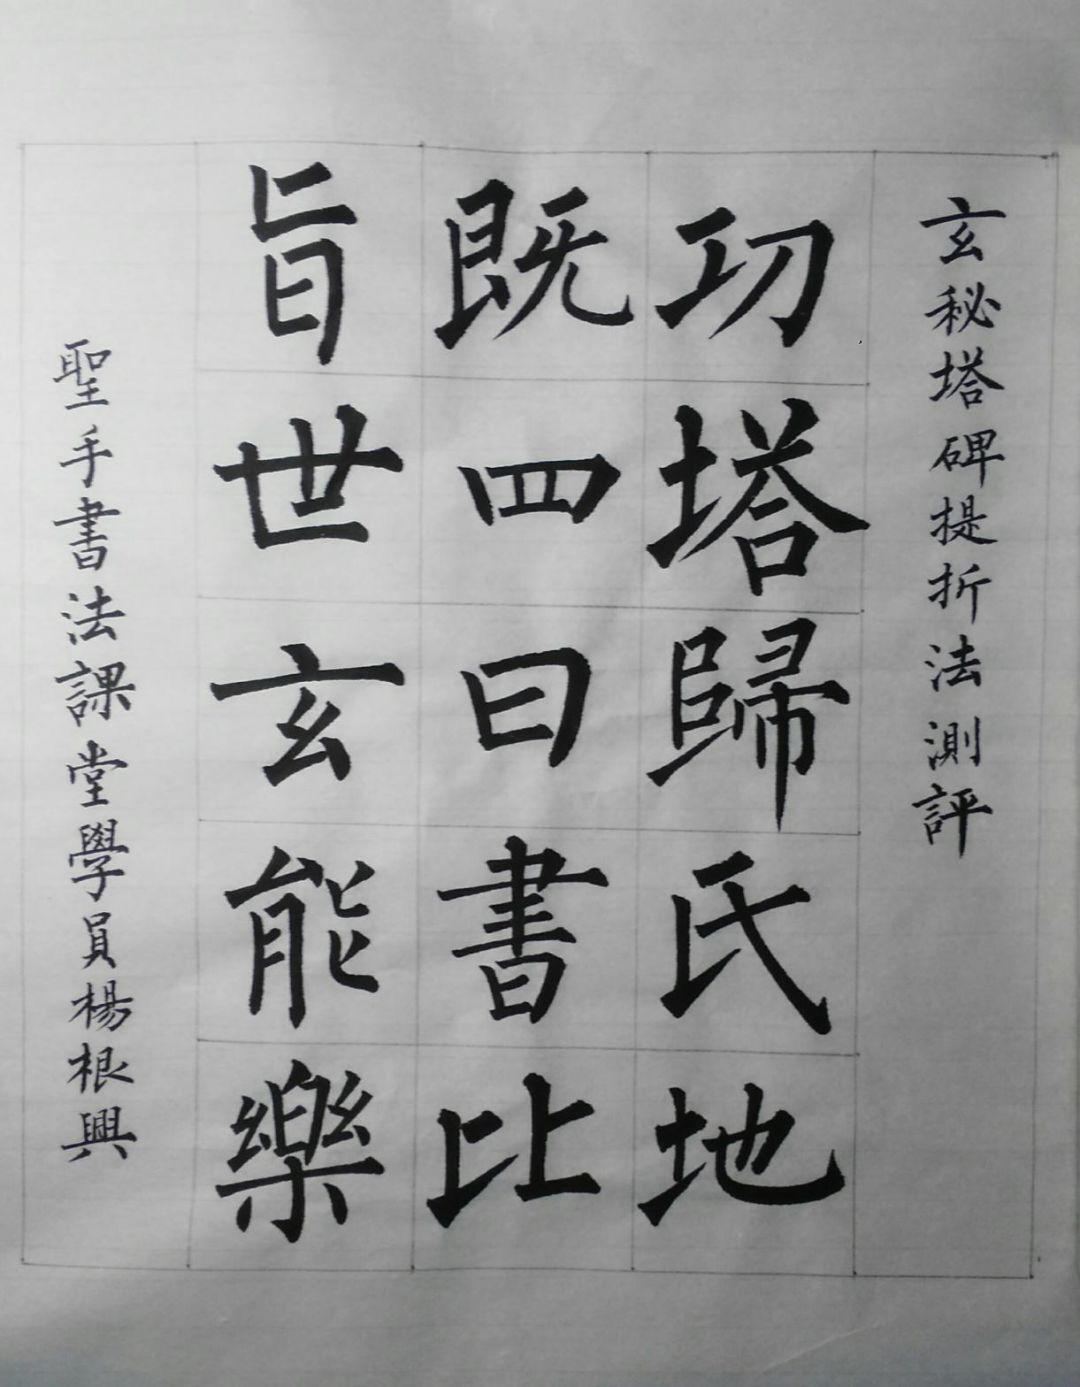 玄秘塔碑提折法測評
功塔歸氏地
既四曰書比
旨世玄能樂
聖手書法課堂學員楊根興